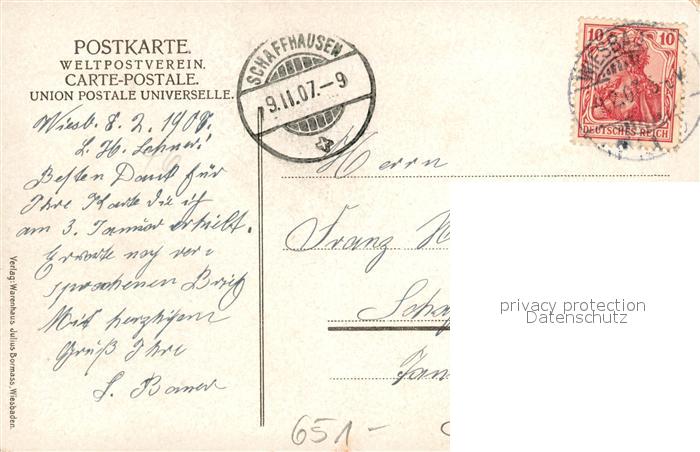 POSTKARTE.
WELTPOSTVEREIN.
CARTE-POSTALE.
UNION POSTALE UNIVERSELLE.
SCHAFFHAUSEN
9.II.07.-9
10 10
DEUTSCHES REICH
WIESBA
Wiesb. 8. 2. 190
L. H.
Besten Dank für
Ihre Karte die ich
am 3. Januar erhielt.
Erwarte noch ver-
sprochenen Brief
Mit herzlichem
Gruß Ihre
Herrn
Franz
Scha
privacy protection
Datenschutz
Verlag: Warenhaus Julius Bormass, Wiesbaden.
651-